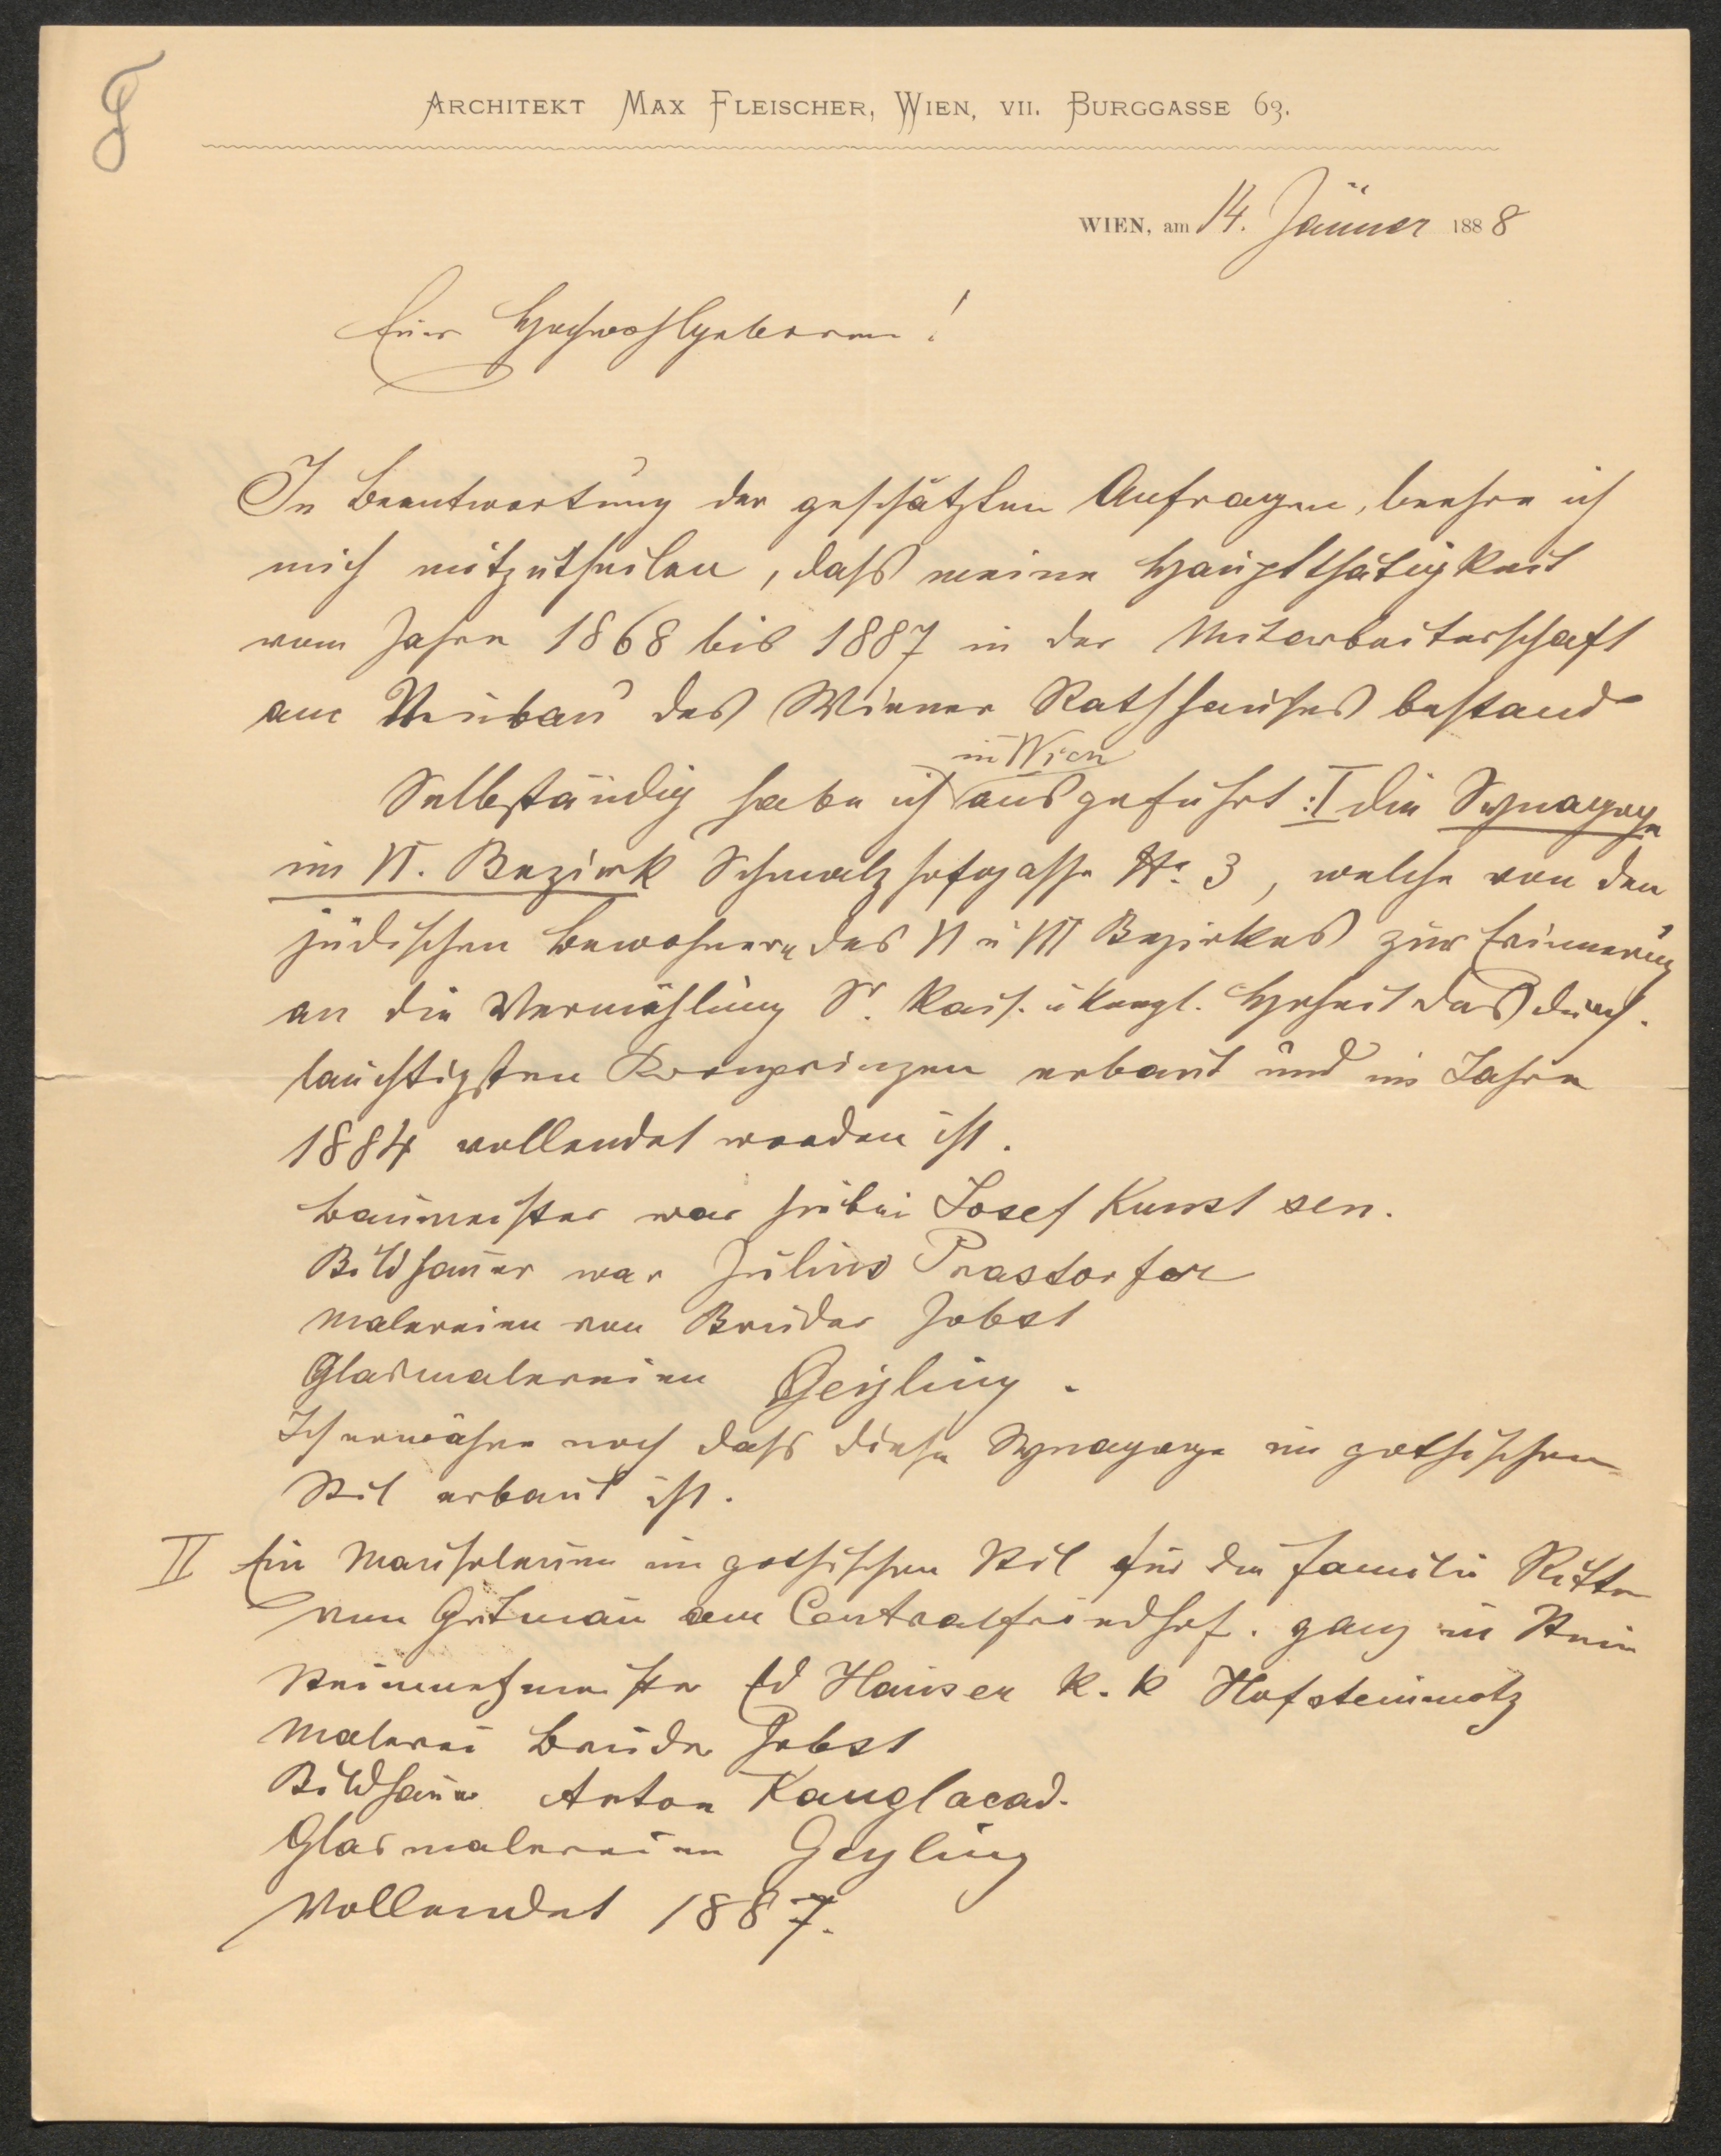 F
ARCHITEKT MAX FLEISCHER, WIEN, VII. BURGGASSE 63.
WIEN, am 14. Jänner 1888
Euer Hochwohlgeboren!
In Beantwortung der geschätzten Anfragen, beehre ich
mich mitzutheilen, daß meine Hauptthätigkeit
vom Jahre 1868 bis 1887 in der Mitarbeiterschaft
am Neubau des Wiener Rathhauses bestand
in Wien
Selbständig habe ich ausgeführt: I die Synagoge
im VI. Bezirk Schmalzhofgasse No. 3, welche von den
jüdischen Bewohnern des VI u VII Bezirkes zur Erinnerung
an die Vermählung Sr. kais. u koengl. Hoheit des durch-
lauchtigsten Kronprinzen erbaut und im Jahre
1884 vollendet worden ist.
Baumeister war hiebei Josef Kunst sen.
Bildhauer war Julius Prastorfer
Malereien von Brüder Jobst
Glasmalereien Geyling.
Ich erwähne noch daß diese Synagoge im gothischen
Stil erbaut ist.
II Ein Mausoleum im gothischen Stil für die Familie Ritter
von Gutman am Centralfriedhof. ganz in Stein
Steinmetzmeister Ed Hauser k. k Hofsteinmetz
Malerei Brüder Jobst
Bildhauer Anton Kangl acad.
Glasmalereien Geyling
Vollendet 1887.